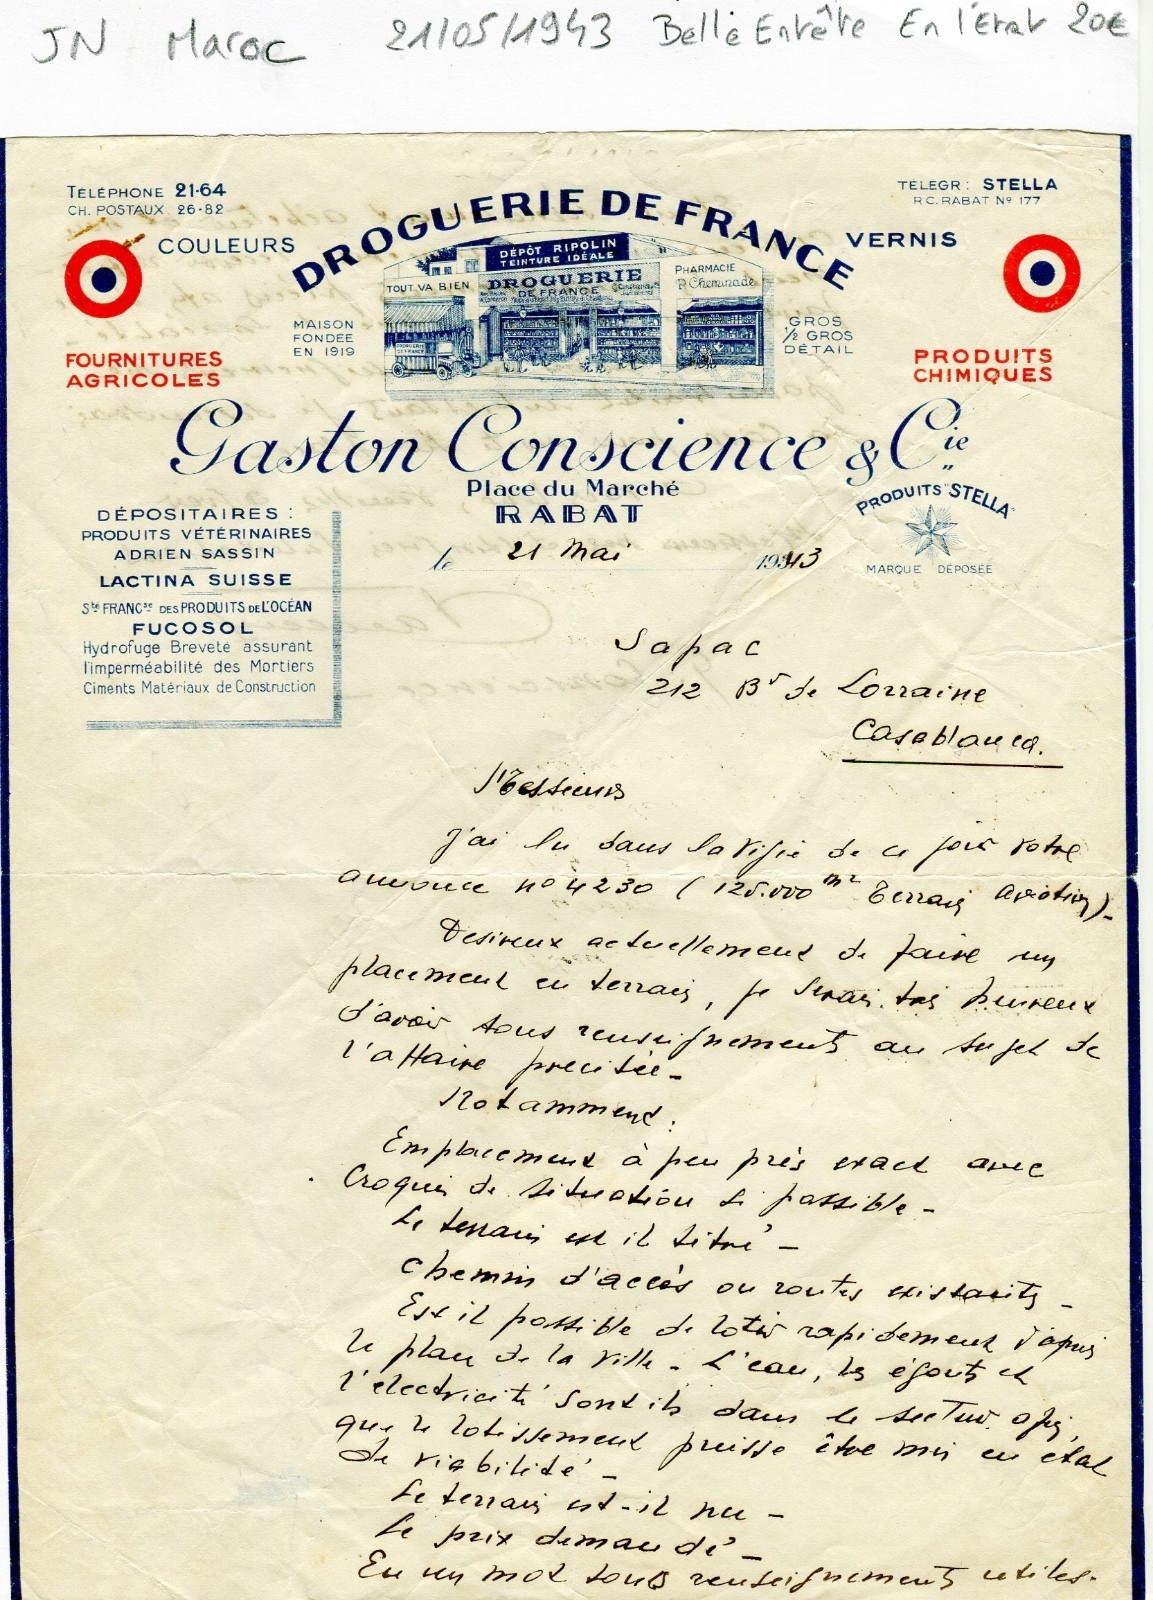 JN Maroc 21/05/1943 Belle Entête En l'état 20€
TÉLÉPHONE 21-64
CH. POSTAUX 26-82
TÉLÉGR: STELLA
R.C. RABAT Nº 177
DROGUERIE DE FRANCE
COULEURS
VERNIS
DÉPÔT RIPOLIN
TEINTURE IDÉALE
TOUT VA BIEN
DROGUERIE
DE FRANCE
PHARMACIE
P. Cheminade
DROGUERIE
DE FRANCE
MAISON
FONDÉE
EN 1919
GROS
1/2 GROS
DÉTAIL
FOURNITURES
AGRICOLES
PRODUITS
CHIMIQUES
Gaston Conscience & Cie
Place du Marché
RABAT
PRODUITS "STELLA"
MARQUE DÉPOSÉE
DÉPOSITAIRES:
PRODUITS VÉTÉRINAIRES
ADRIEN SASSIN
LACTINA SUISSE
Sté FRANCse DES PRODUITS DE L'OCÉAN
FUCOSOL
Hydrofuge Breveté assurant
l'imperméabilité des Mortiers
Ciments Matériaux de Construction
le 21 Mai 1943
Sapac
212 Bd de Lorraine
Casablanca.
Messieurs
J'ai lu dans la Vigie de ce jour votre
annonce nº 4230 (125.000 m² Terrain Aviation)-
Desireux actuellement de faire un
placement en terrain, je serais très heureux
d'avoir tous renseignements au sujet de
l'affaire precitée-
Notamment:
Emplacement à peu près exact avec
Croquis de situation si possible-
Le terrain est il titré-
Chemin d'accès ou routes existants-
Est il possible de lotir rapidement d'après
le plan de la ville- L'eau, les égouts et
l'electricité sont ils dans le secteur afin
que le lotissement puisse être mis en état
de viabilité-
Le terrain est-il nu-
Le prix demandé-
En un mot tous renseignements utiles-